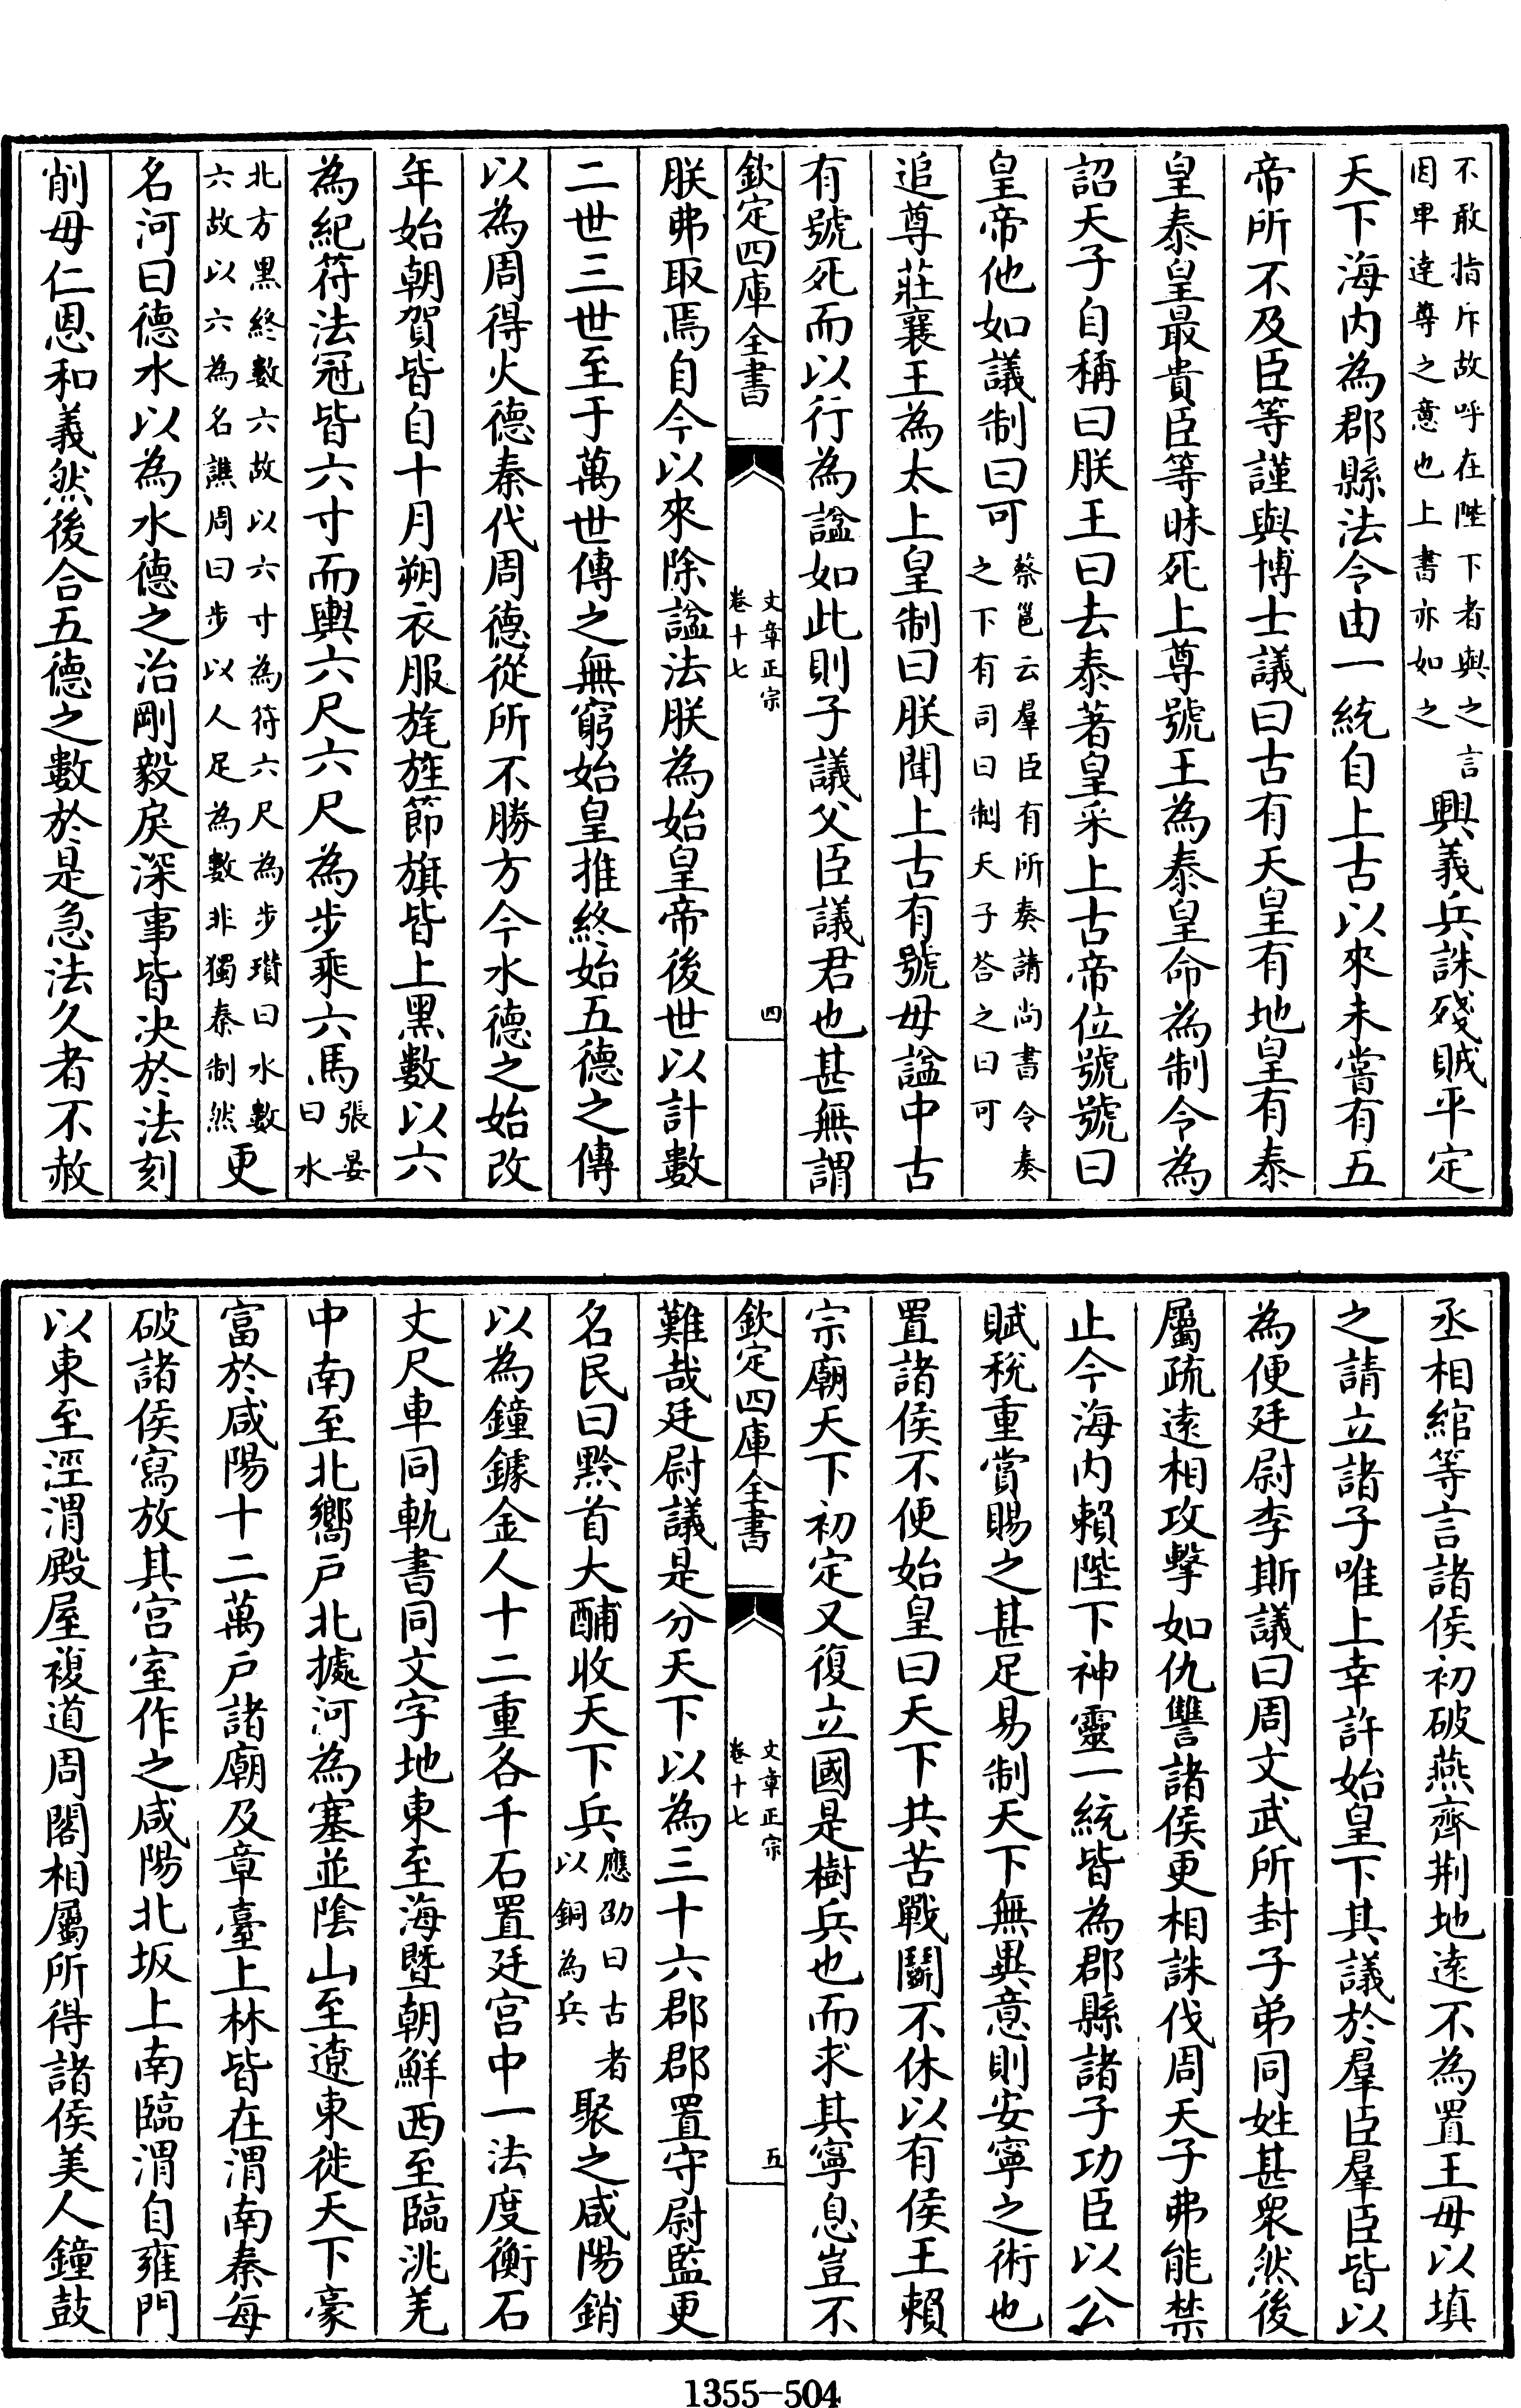 不敢指斥故呼在陛下者與之言
因卑達尊之意也上書亦如之
興義兵誅殘賊平定
天下海内為郡縣法令由一統自上古以來未嘗有五
帝所不及臣等謹與博士議曰古有天皇有地皇有泰
皇泰皇最貴臣等昧死上尊號王為泰皇命為制令為
詔天子自稱曰朕王曰去泰著皇采上古帝位號號曰
皇帝他如議制曰可
蔡邕云羣臣有所奏請尚書令奏
之下有司曰制天子荅之曰可
追尊莊襄王為太上皇制曰朕聞上古有號毋諡中古
有號死而以行為諡如此則子議父臣議君也甚無謂
欽定四庫全書
文章正宗
卷十七
四
朕弗取焉自今以來除諡法朕為始皇帝後世以計數
二世三世至于萬世傳之無窮始皇推終始五德之傳
以為周得火德秦代周德從所不勝方今水德之始改
年始朝賀皆自十月朔衣服旄旌節旗皆上黑數以六
為紀符法冠皆六寸而輿六尺六尺為步乘六馬
張晏
曰水
北方黑終數六故以六寸為符六尺為步瓚曰水數
六故以六為名譙周曰步以人足為數非獨秦制然
更
名河曰德水以為水德之治剛毅戾深事皆決於法刻
削毋仁恩和義然後合五德之數於是急法久者不赦
丞相綰等言諸侯初破燕齊荆地遠不為置王毋以填
之請立諸子唯上幸許始皇下其議於羣臣羣臣皆以
為便廷尉李斯議曰周文武所封子弟同姓甚衆然後
屬疏遠相攻擊如仇讐諸侯更相誅伐周天子弗能禁
止今海内賴陛下神靈一統皆為郡縣諸子功臣以公
賦稅重賞賜之甚足易制天下無異意則安寧之術也
置諸侯不便始皇曰天下共苦戰鬭不休以有侯王賴
宗廟天下初定又復立國是樹兵也而求其寧息豈不
欽定四庫全書
文章正宗
卷十七
五
難哉廷尉議是分天下以為三十六郡郡置守尉監更
名民曰黔首大酺收天下兵
應劭曰古者
以銅為兵
聚之咸陽銷
以為鐘鐻金人十二重各千石置廷宫中一法度衡石
丈尺車同軌書同文字地東至海暨朝鮮西至臨洮羌
中南至北嚮戶北據河為塞並陰山至遼東徙天下豪
富於咸陽十二萬戶諸廟及章臺上林皆在渭南秦每
破諸侯寫放其宫室作之咸陽北坂上南臨渭自雍門
以東至涇渭殿屋複道周閣相屬所得諸侯美人鐘鼓
1355—504